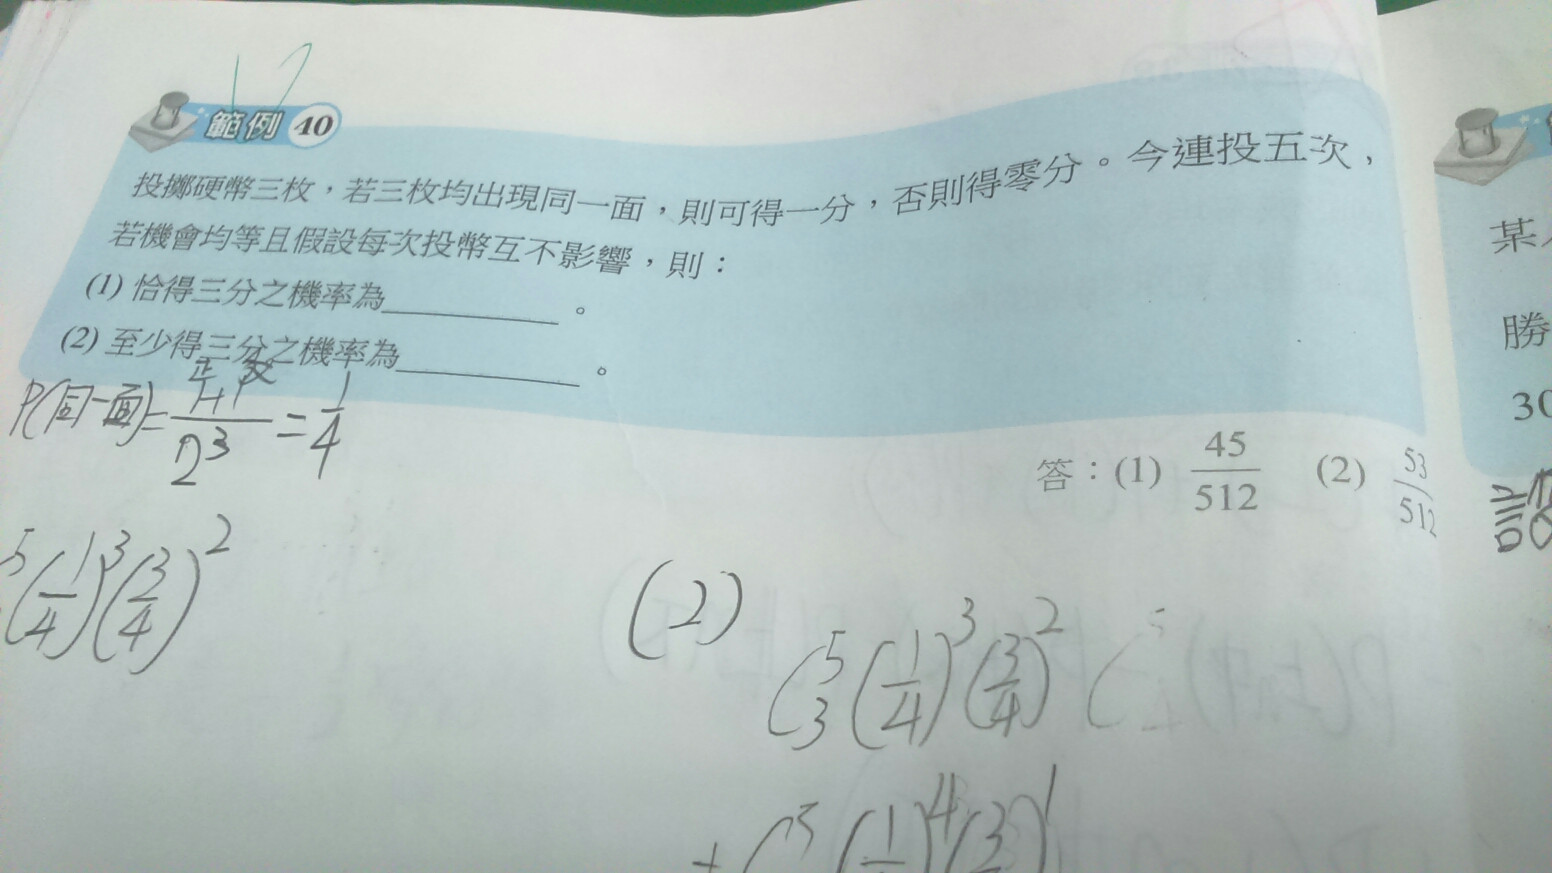 範例 40
投擲硬幣三枚，若三枚均出現同一面，則可得一分，否則得零分。今連投五次，
若機會均等且假設每次投幣互不影響，則：
(1) 恰得三分之機率為________。
(2) 至少得三分之機率為________。
正 反
P(同一面)=\frac{1+1}{2^3}=\frac{1}{4}
答：(1) \frac{45}{512} (2) \frac{53}{512}
5(\frac{1}{4})^3(\frac{3}{4})^2
(2)
C^5_3(\frac{1}{4})^3(\frac{3}{4})^2
某
勝
30